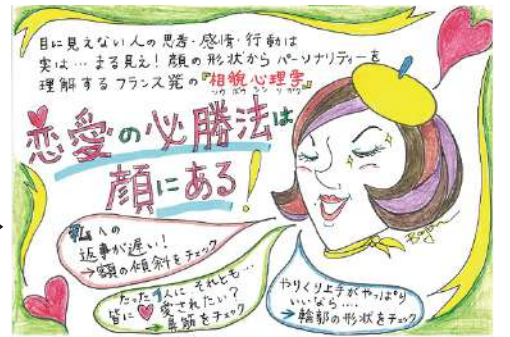 目に見えない人の思考・感情・行動は
実は…まる見え！顔の形状からパーソナリティーを
理解するフランス発の『相貌心理学』
ソウボウシンリガク
恋愛の必勝法は
顔にある!
私への
返事が遅い!
→額の傾斜をチェック
たった1人に それとも…
皆に♥愛されたい?
→鼻筋をチェック
やりくり上手がやっぱり
いいなら….
→輪郭の形状をチェック